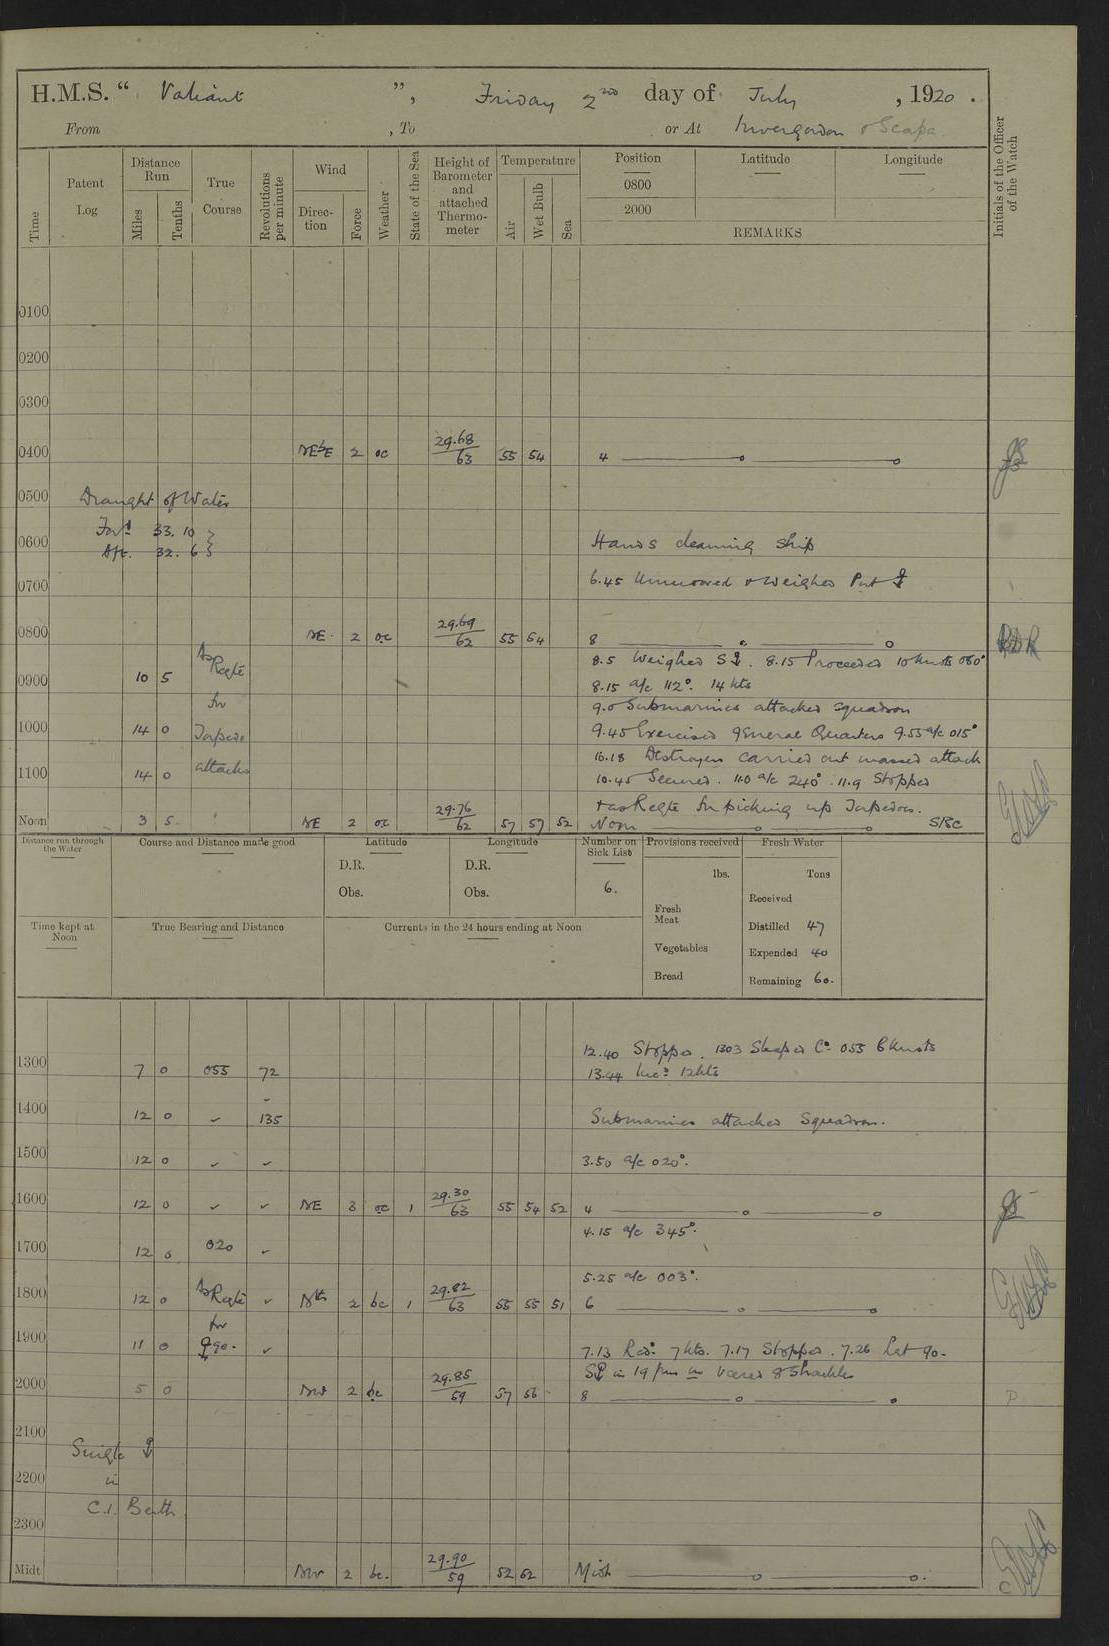 H.M.S. “ Valiant ”, Friday 2nd day of July , 1920 .
From , To or At Invergordon & Scapa
Time
Patent Log
Distance Run
Miles
Tenths
True Course
Revolutions per minute
Wind
Direction
Force
Weather
State of the Sea
Height of Barometer and attached Thermometer
Temperature
Air
Wet Bulb
Sea
Position
0800
2000
Latitude
Longitude
REMARKS
Initials of the Officer of the Watch
0100
0200
0300
0400 NE'E 2 oc 29.68/63 55 54 4
0500 Draught of Water
Ford 33.10
0600 Hands cleaning ship
Aft. 32.6
0700 6.45 Unmoored & Weighed Port
0800 NE 2 oc 29.69/62 55 54 8
8.5 Weighed S. 8.15 Proceeded 10 knots 080°
0900 10 5 As Reqte 8.15 a/c 112°. 14 kts
for 9.0 Submarines attacked squadron
1000 14 0 Torpedo 9.45 Exercised General Quarters 9.55 a/c 015°
10.18 Destroyers carried out massed attack
1100 14 0 attacks 10.45 Secured. 11.0 a/c 240°. 11.9 Stopped
& as Reqte for picking up Torpedoes.
Noon 3 5 NE 2 oc 29.76/62 57 57 52 Noon SRC
Distance run through the Water
Course and Distance made good
Latitude
D.R.
Obs.
Longitude
D.R.
Obs.
Number on Sick List
6.
Provisions received
lbs.
Fresh Meat
Vegetables
Bread
Fresh Water
Tons
Received
Distilled 47
Expended 40
Remaining 60.
Time kept at Noon
True Bearing and Distance
Currents in the 24 hours ending at Noon
12.40 Stopped. 1303 Shaped Co 055 6 knots
1300 7 0 055 72 13.44 Inc. 12 kts
1400 12 0 ✓ 135 Submarines attacked Squadron.
1500 12 0 ✓ ✓ 3.50 a/c 020°.
1600 12 0 ✓ ✓ NE 3 oc 1 29.30/63 55 54 52 4
4.15 a/c 345°.
1700 12 0 020 ✓
5.25 a/c 003°.
1800 12 0 As Reqte ✓ 2 bc 1 29.82/63 55 55 51 6
for
1900 11 0 ✓ 7.13 Red. 7 kts. 7.17 Stopped. 7.26 Let go.
in 19 fms veered 8 Shackles
2000 5 0 NW 2 bc 29.85/59 57 56 8
2100
Single
2200 in
C.1. Berth
2300
Midt NW 2 bc. 29.90/59 52 52 Midt